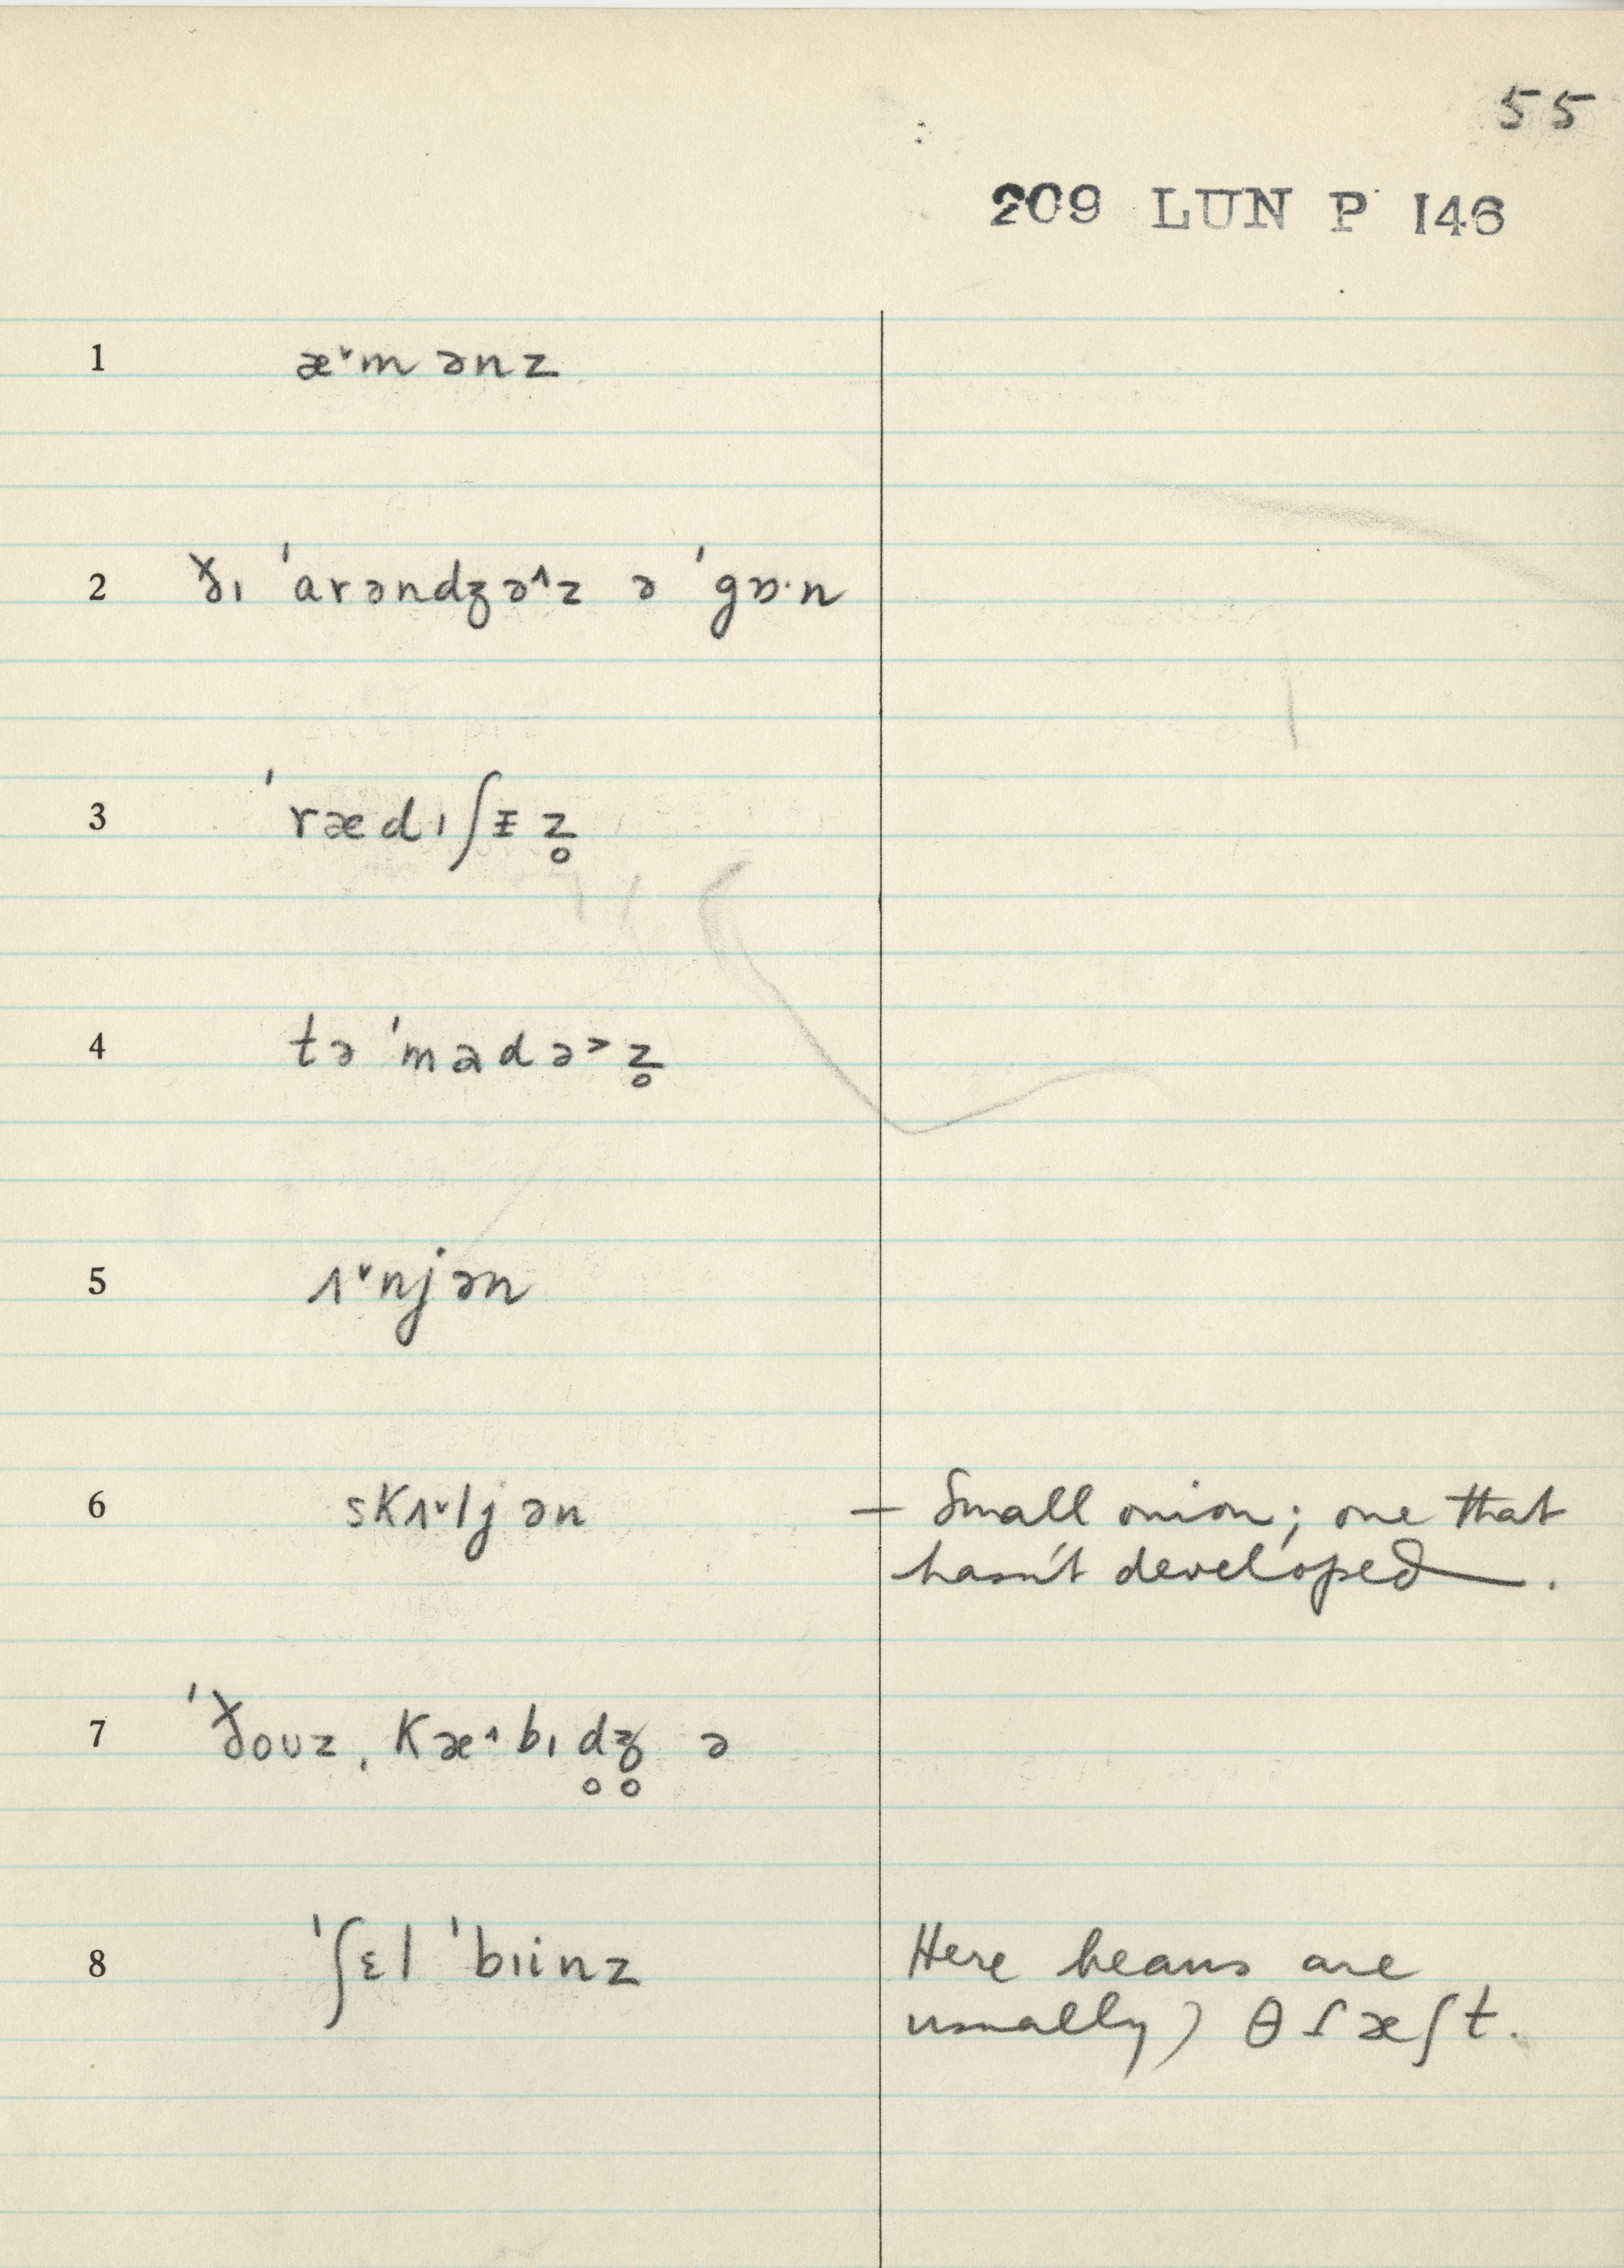 55
209 LUN P 146
1 æ˅mənz
2 ðı ˈarəndʒə˄z ə ˈgɒ·n
3 ˈrædıʃɪ̵z̥
4 təˈmadə˃z̥
5 ʌ˅njən
6 skʌ˅ljən – Small onion; one that
hasn't developed.
7 ˈðouz ˌkæ˄bıd̥ʒ̥ ə
8 ˈʃɛl ˈbıinz Here beans are
usually) θɾæʃt.